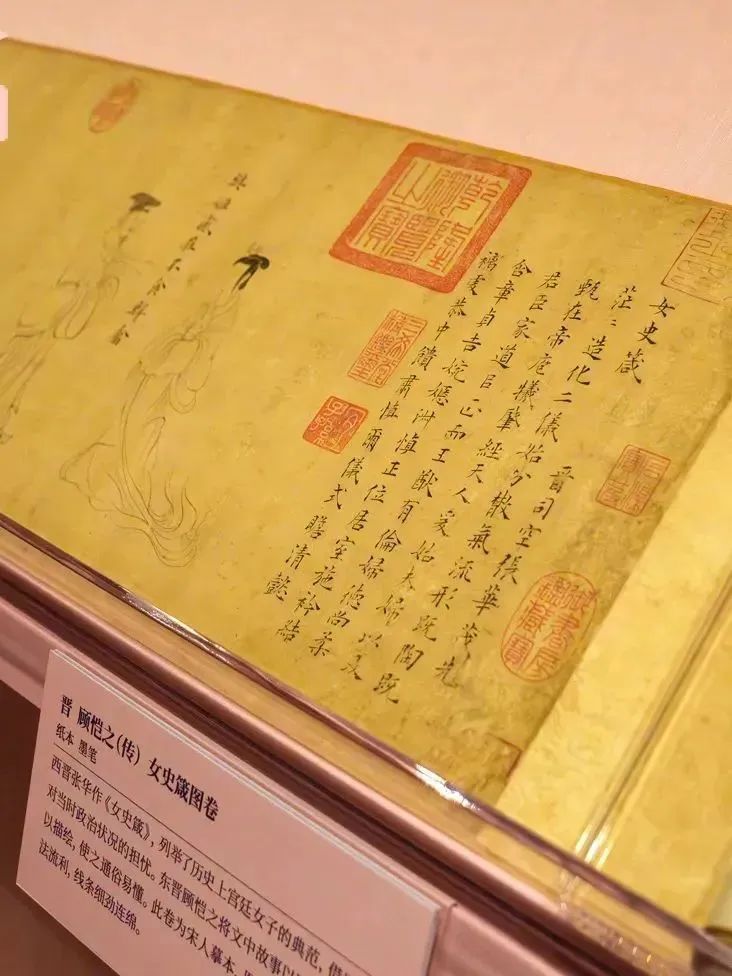 女史箴
晉司空張華茂先
茫〻造化二儀始分散氣流形既陶既
甄在帝庖犧肇經天人爰始夫婦以及
君臣家道㠯正而王猷有倫婦德尚柔
含章貞吉婉嫕淑慎正位居室施衿結
褵虔恭中饋肅慎爾儀式瞻清懿
樊姬感莊不食鮮禽
乾隆御覽之寶
三希堂精鑑璽
宜子孫
石渠寶笈
御書房鑑藏寶
晋 顾恺之(传) 女史箴图卷
纸本 墨笔
西晋张华作《女史箴》，列举了历史上宫廷女子的典范，借
对当时政治状况的担忧。东晋顾恺之将文中故事以
以描绘，使之通俗易懂。此卷为宋人摹本，
法流利，线条细劲连绵。